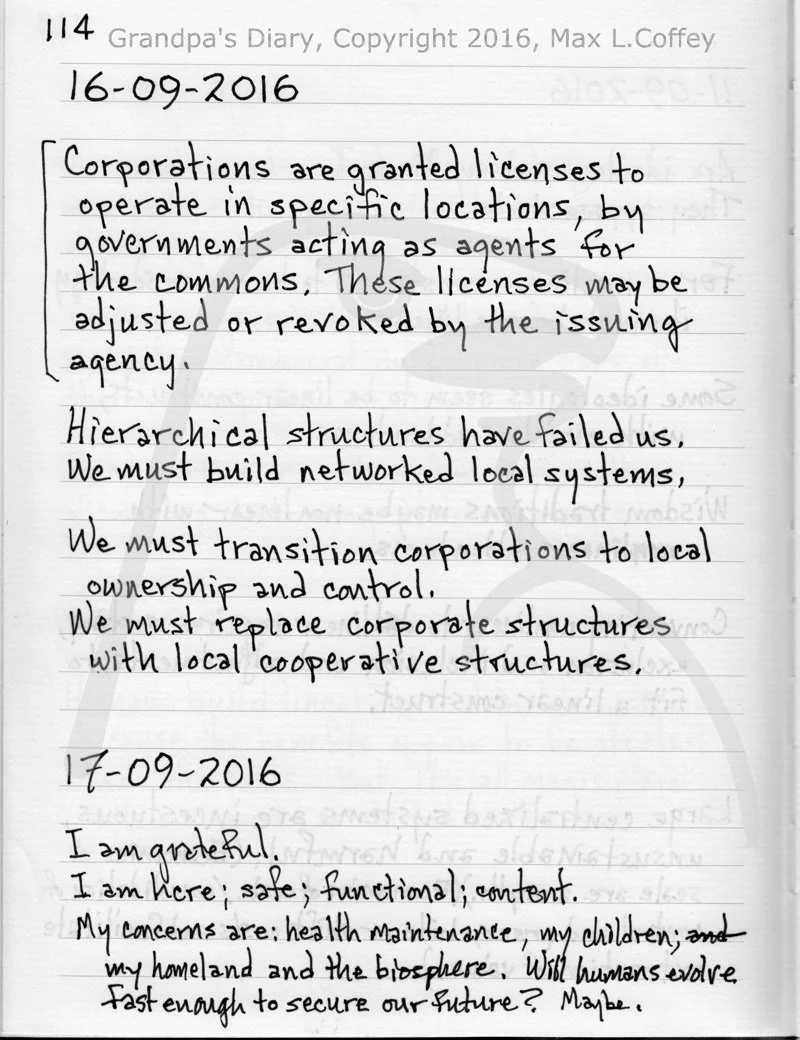 114 Grandpa's Diary, Copyright 2016, Max L.Coffey
16-09-2016
Corporations are granted licenses to
operate in specific locations, by
governments acting as agents for
the commons. These licenses may be
adjusted or revoked by the issuing
agency.
Hierarchical structures have failed us.
We must build networked local systems,
We must transition corporations to local
ownership and control.
We must replace corporate structures
with local cooperative structures.
17-09-2016
I am grateful.
I am here; safe; functional; content.
My concerns are: health maintenance, my children; and
my homeland and the biosphere. Will humans evolve
fast enough to secure our future? Maybe.